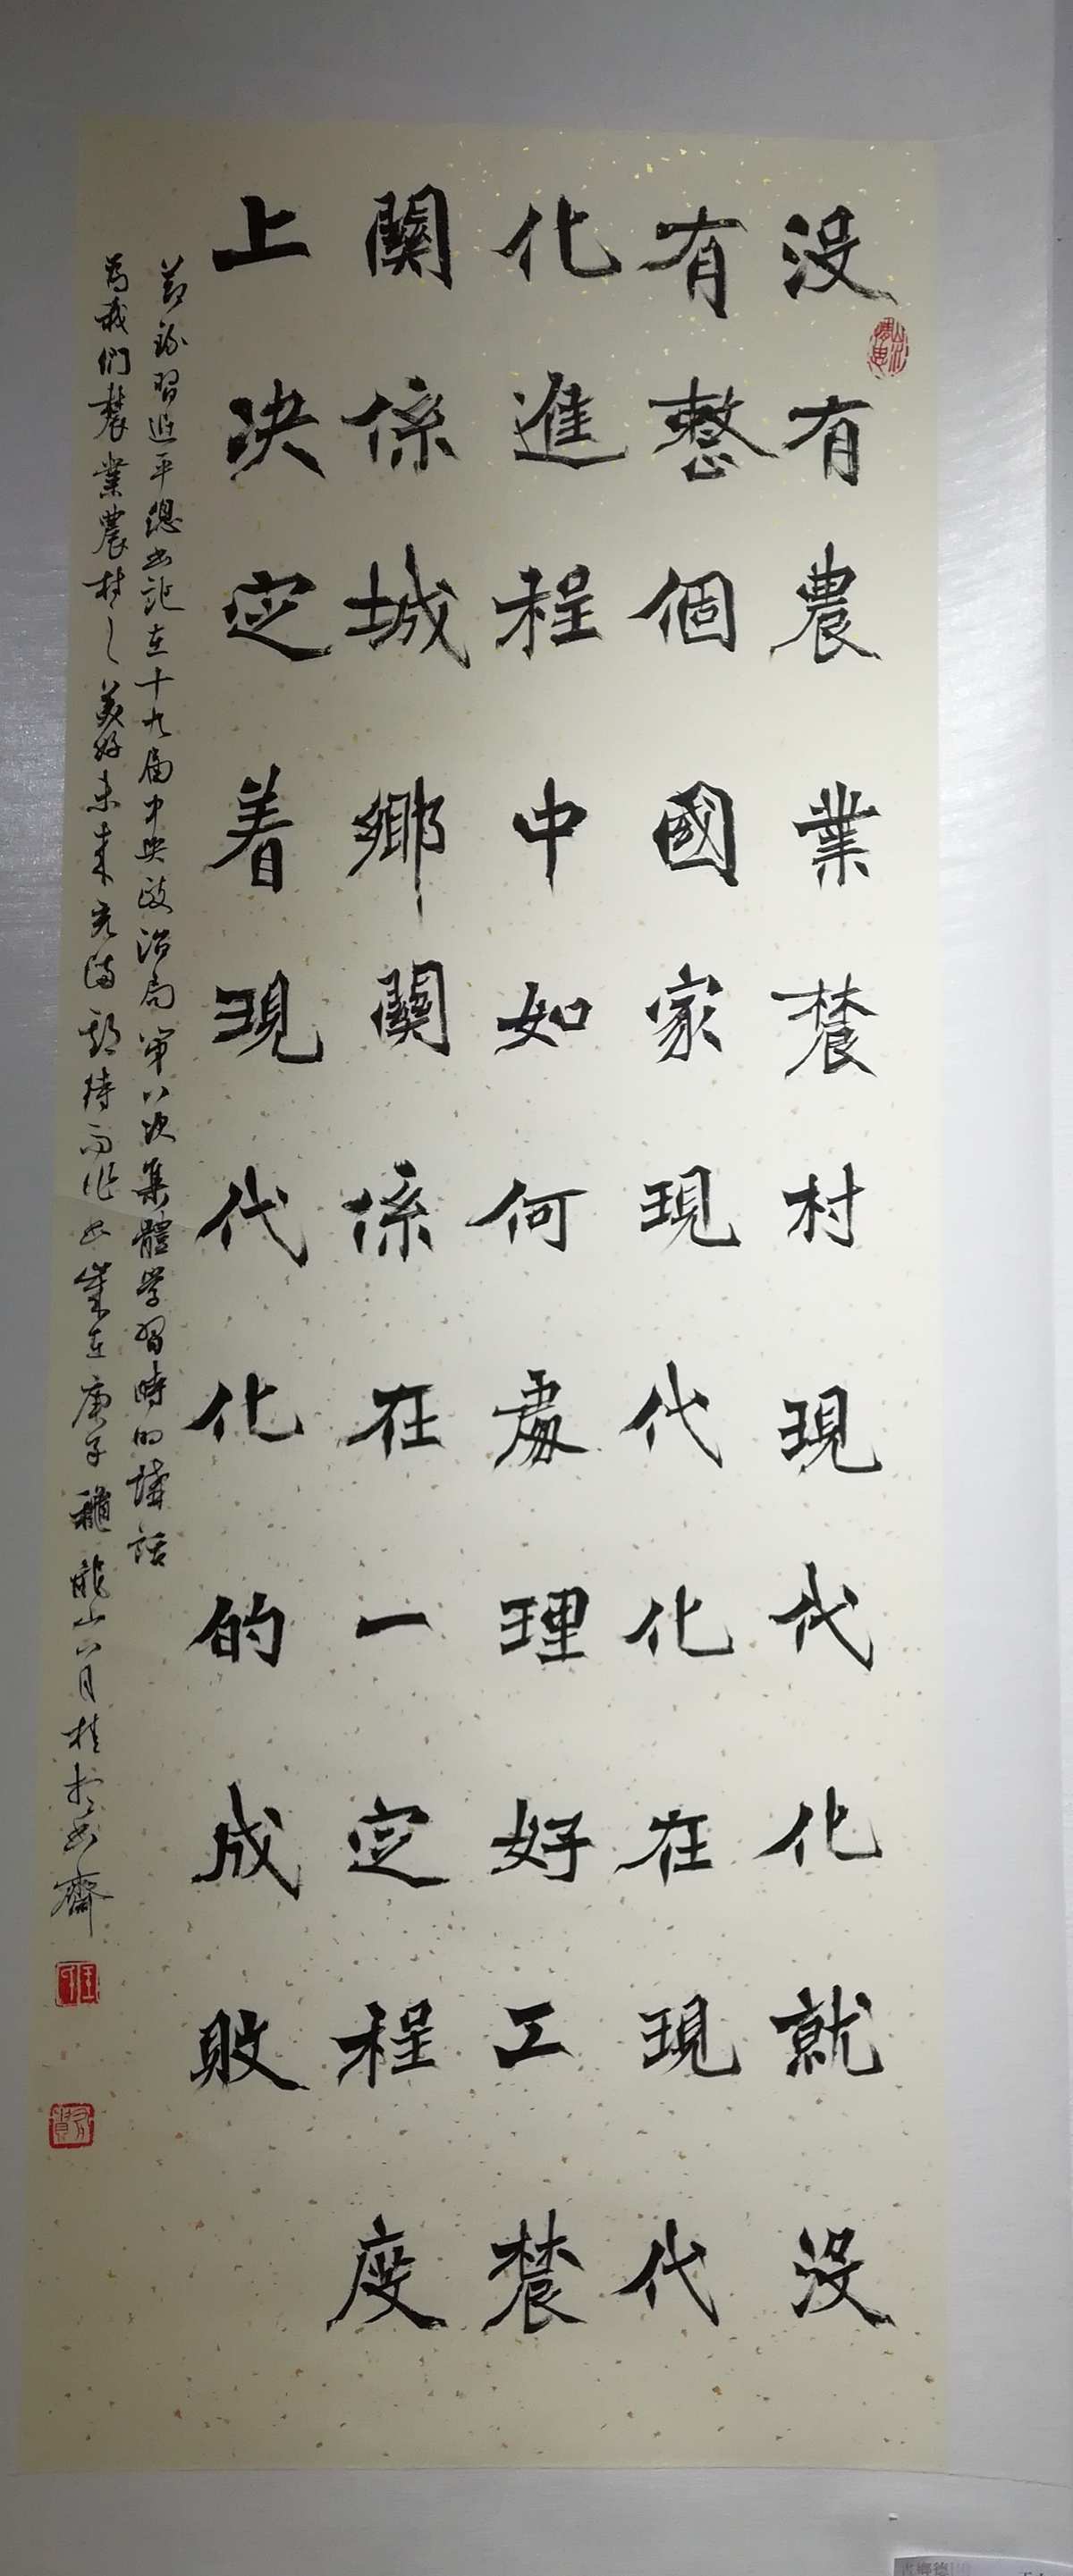 没有農業辳村現代化就没
有整個國家現代化在現代
化進程中如何處理好工辳
關係城鄉關係在一定程度
上決定着現代化的成敗
節録習近平總書記在十九届中央政治局第八次集體学習時的講話
為我們辳業農村之美好未來充满期待而作書歲在庚子龝龍山六月桂於書齋